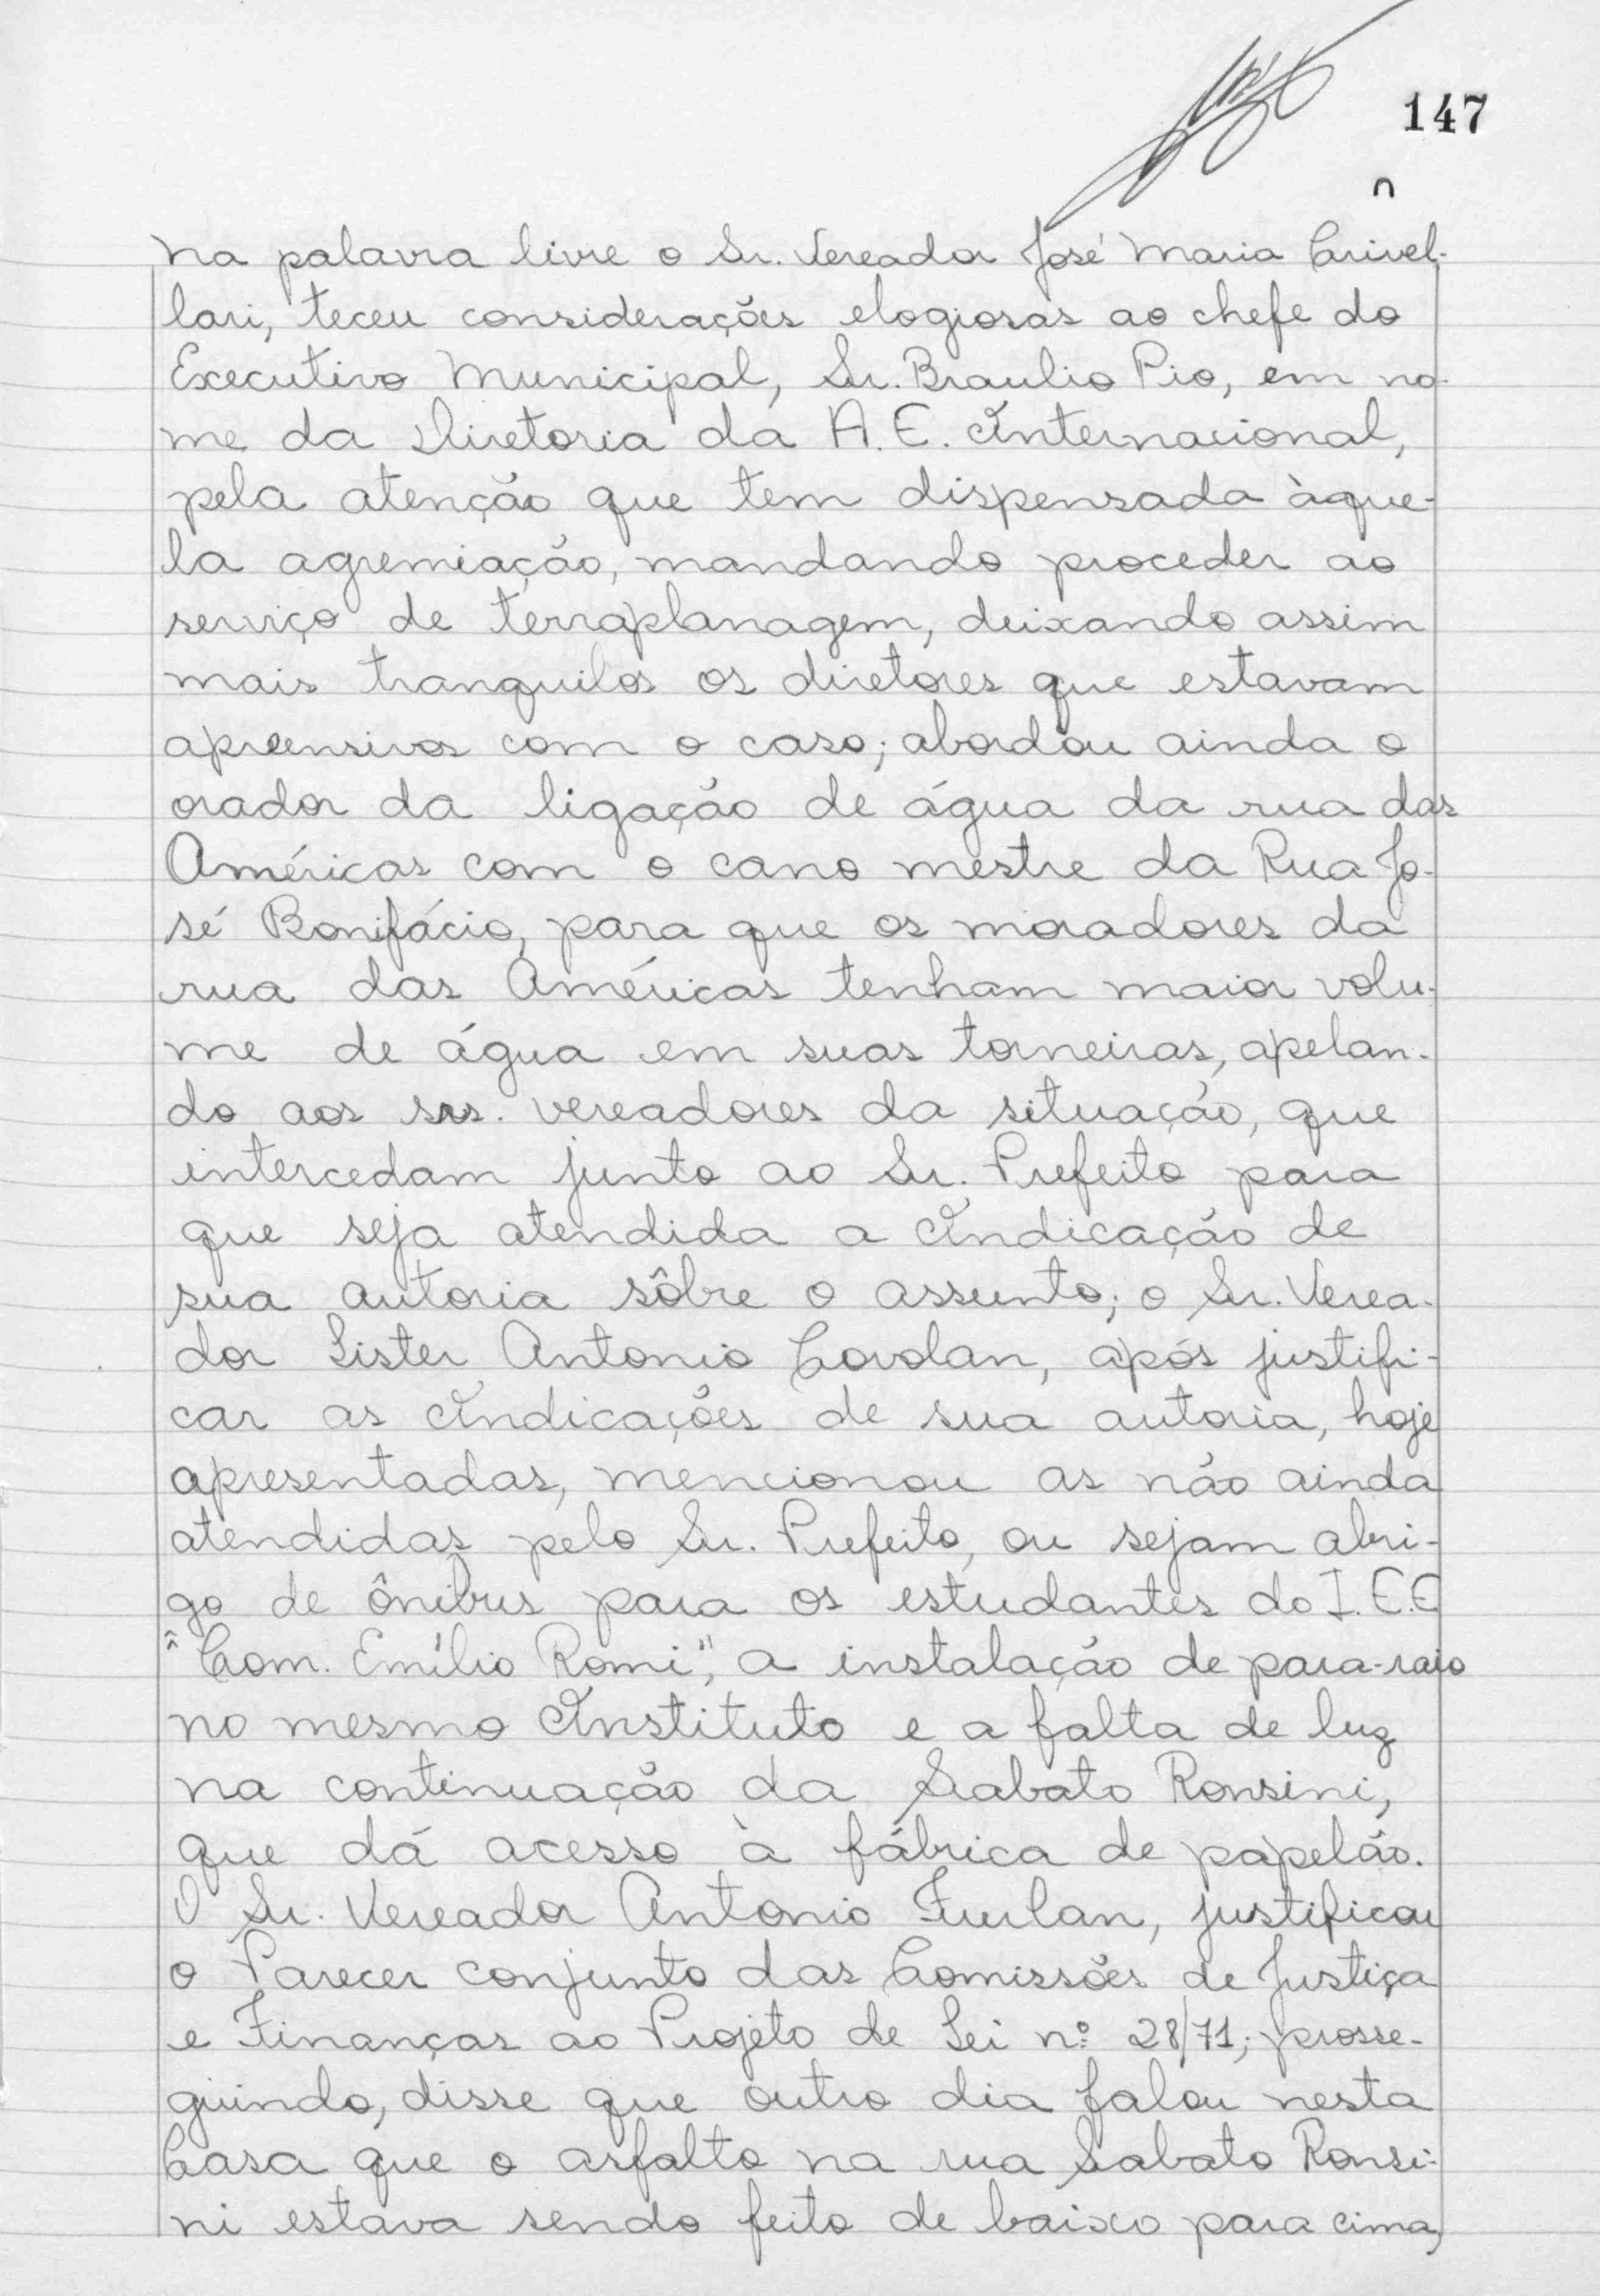 147
na palavra livre o Sr. Vereador José Maria Crivel-
lari, teceu considerações elogiosas ao chefe do
Executivo Municipal, Sr. Braulio Pio, em no-
me da Diretoria da A. E. Internacional,
pela atenção que tem dispensada àque-
la agremiação, mandando proceder ao
serviço de terraplanagem, deixando assim
mais tranquilos os diretores que estavam
apreensivos com o caso; abordou ainda o
orador da ligação de água da rua das
Américas com o cano mestre da Rua Jo-
sé Bonifácio, para que os moradores da
rua das Américas tenham maior volu-
me de água em suas torneiras, apelan-
do aos srs. vereadores da situação, que
intercedam junto ao Sr. Prefeito para
que seja atendida a Indicação de
sua autoria sôbre o assunto; o Sr. Verea-
dor Lister Antonio Covolan, após justifi-
car as Indicações de sua autoria, hoje
apresentadas, mencionou as não ainda
atendidas pelo Sr. Prefeito, ou sejam abri-
go de ônibus para os estudantes do I.E.E
"Com. Emílio Romi", a instalação de para-raio
no mesmo Instituto e a falta de luz
na continuação da Sabato Ronsini,
que dá acesso à fábrica de papelão.
O Sr. Vereador Antonio Furlan, justificou
o Parecer conjunto das Comissões de Justiça
e Finanças ao Projeto de Lei nº 28/71; prosse-
guindo, disse que outro dia falou nesta
Casa que o asfalto na rua Sabato Ronsi-
ni estava sendo feito de baixo para cima,